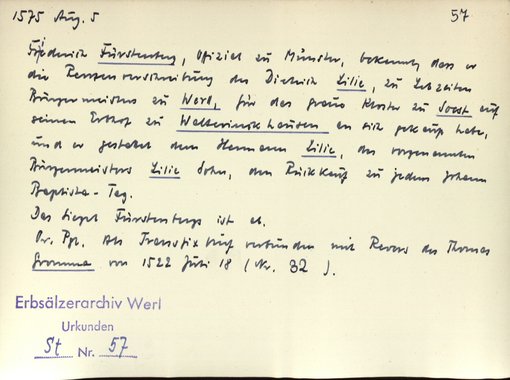 1575 Aug. 5 57
Friederich Fürstenberg, Offizial zu Münster, bekennt, dass er
die Rentenverschreibung des Dietrich Lilie, zu Lebzeiten
Bürgermeister zu Werl, für das graue Kloster zu Soest auf
seinen Erbhof zu Walteringkhausen an sich gekauft habe,
und er gestattet dem Hermann Lilie, des vorgenannten
Bürgermeisters Lilie Sohn, den Rückkauf zu jedem Johann
Baptista-Tag.
Das Siegel Fürstenbergs ist ab.
Or. Pgt. Als Transfixbrief verbunden mit Revers des Thomas
von 1522 Juli 18 (Nr. 32).
Erbsälzerarchiv Werl
Urkunden
St Nr. 57